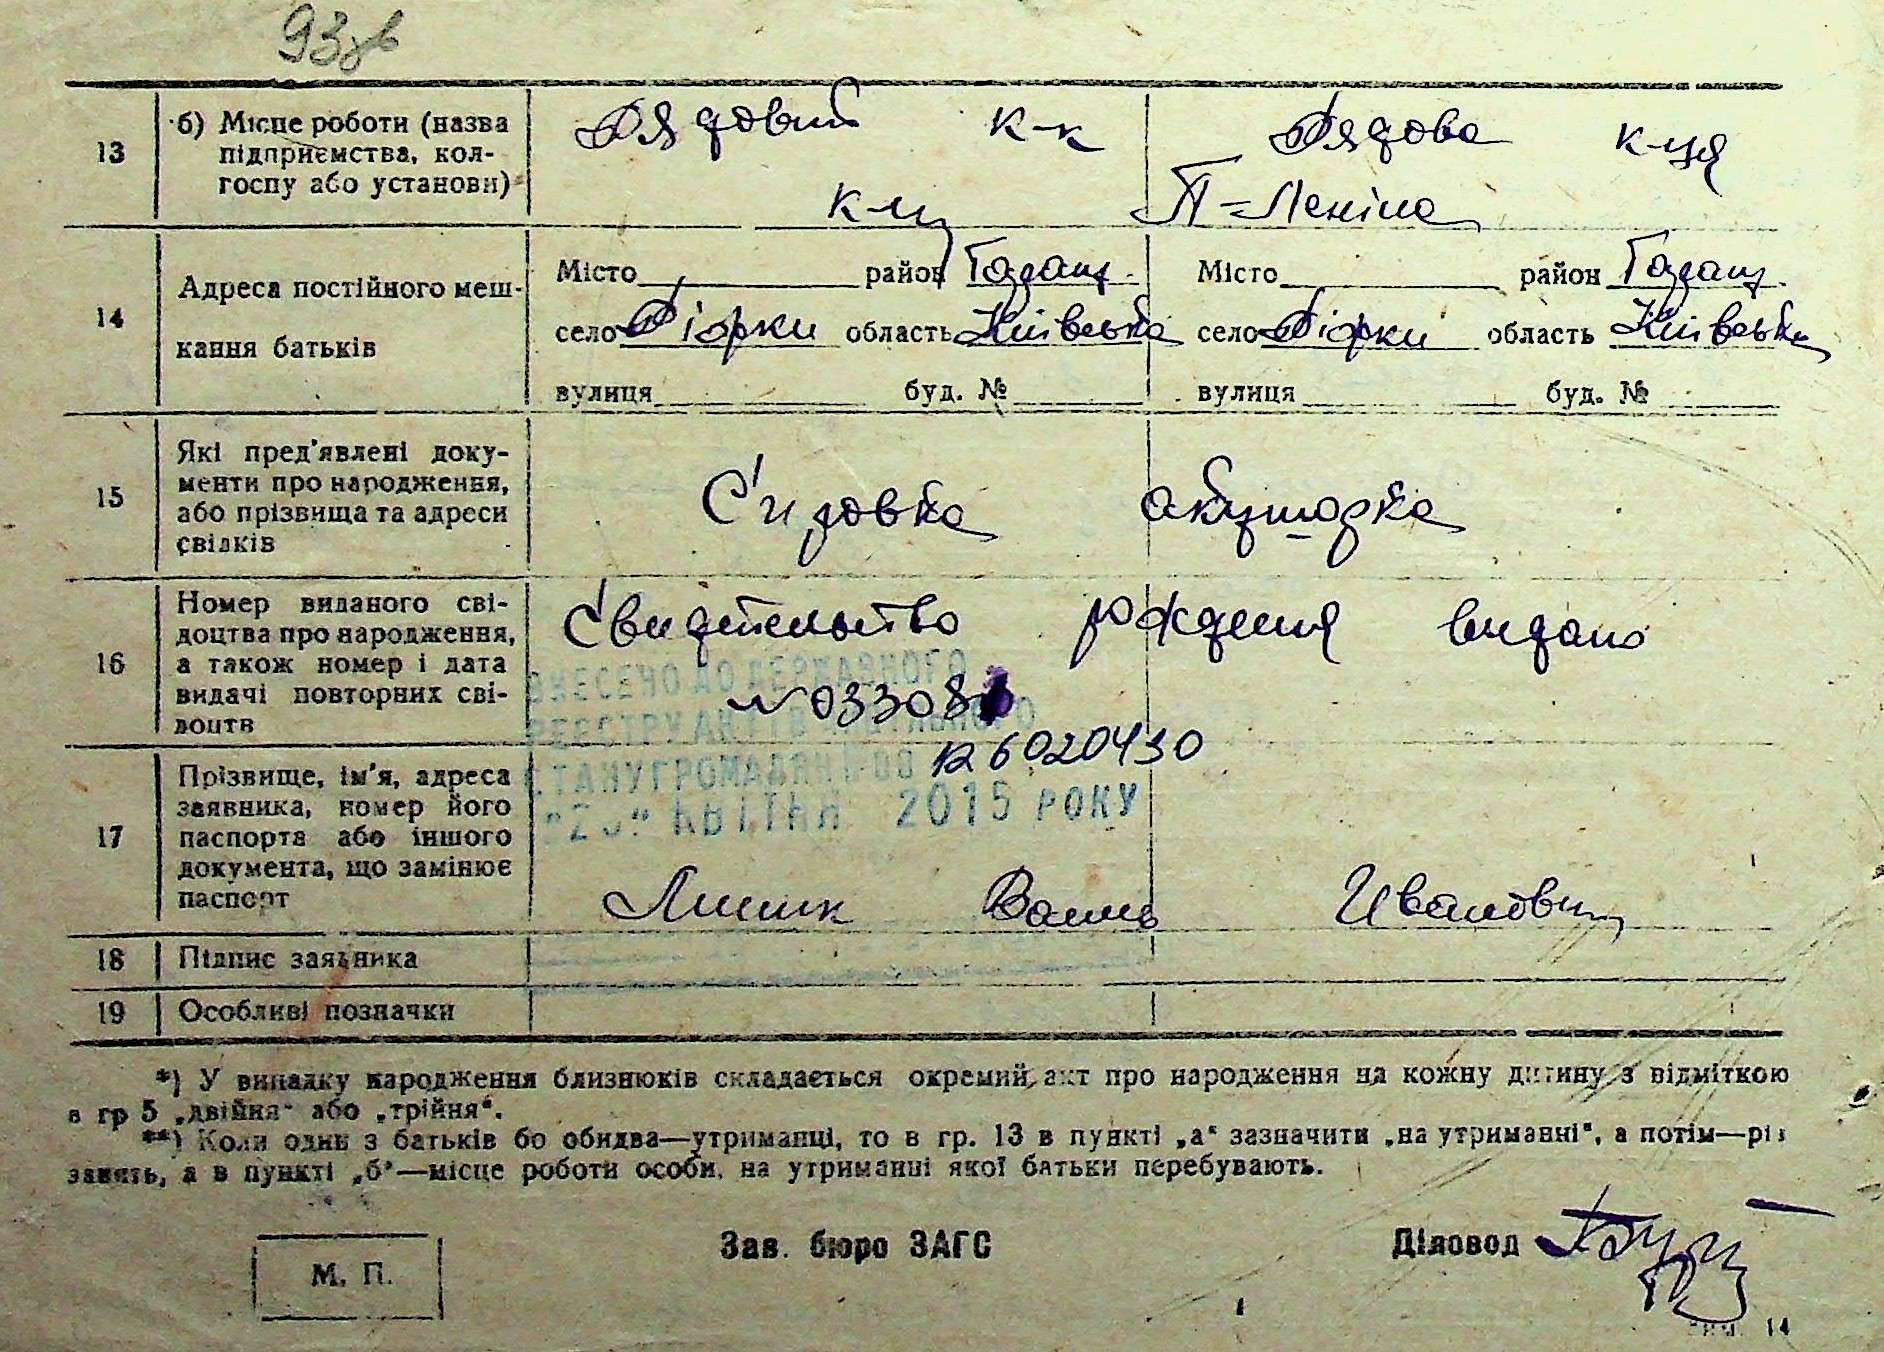 93 зв
13 б) Місце роботи (назва підприємства, колгоспу або установи) Рядовий к-к Рядова к-ця
к-пу П-Леніна
14 Адреса постійного мешкання батьків
Місто район Таращ. Місто район Таращ.
село область Київська село область Київська
вулиця буд. № вулиця буд. №
15 Які пред'явлені документи про народження, або прізвища та адреси свідків
акушорка
16 Номер виданого свідоцтва про народження, а також номер і дата видачі повторних свідоцтв
Свидетельство рождения видано
№ 03308
ВНЕСЕНО ДО ДЕРЖАВНОГО
РЕЄСТРУ АКТІВ ЦИВІЛЬНОГО
СТАНУ ГРОМАДЯН №00126020430
КВІТНЯ 2015 РОКУ
17 Прізвище, ім'я, адреса заявника, номер його паспорта або іншого документа, що замінює паспорт
Иванович
18 Підпис заявника
19 Особливі позначки
*) У випадку народження близнюків складається окремий акт про народження на кожну дитину з відміткою
в гр 5 „двійня" або „трійня".
**) Коли один з батьків бо обидва—утриманці, то в гр. 13 в пункті „а" зазначити „на утриманні", а потім—рід
занять, а в пункті „б"—місце роботи особи, на утриманні якої батьки перебувають.
Зав. бюро ЗАГС
Діловод
М. П.
14